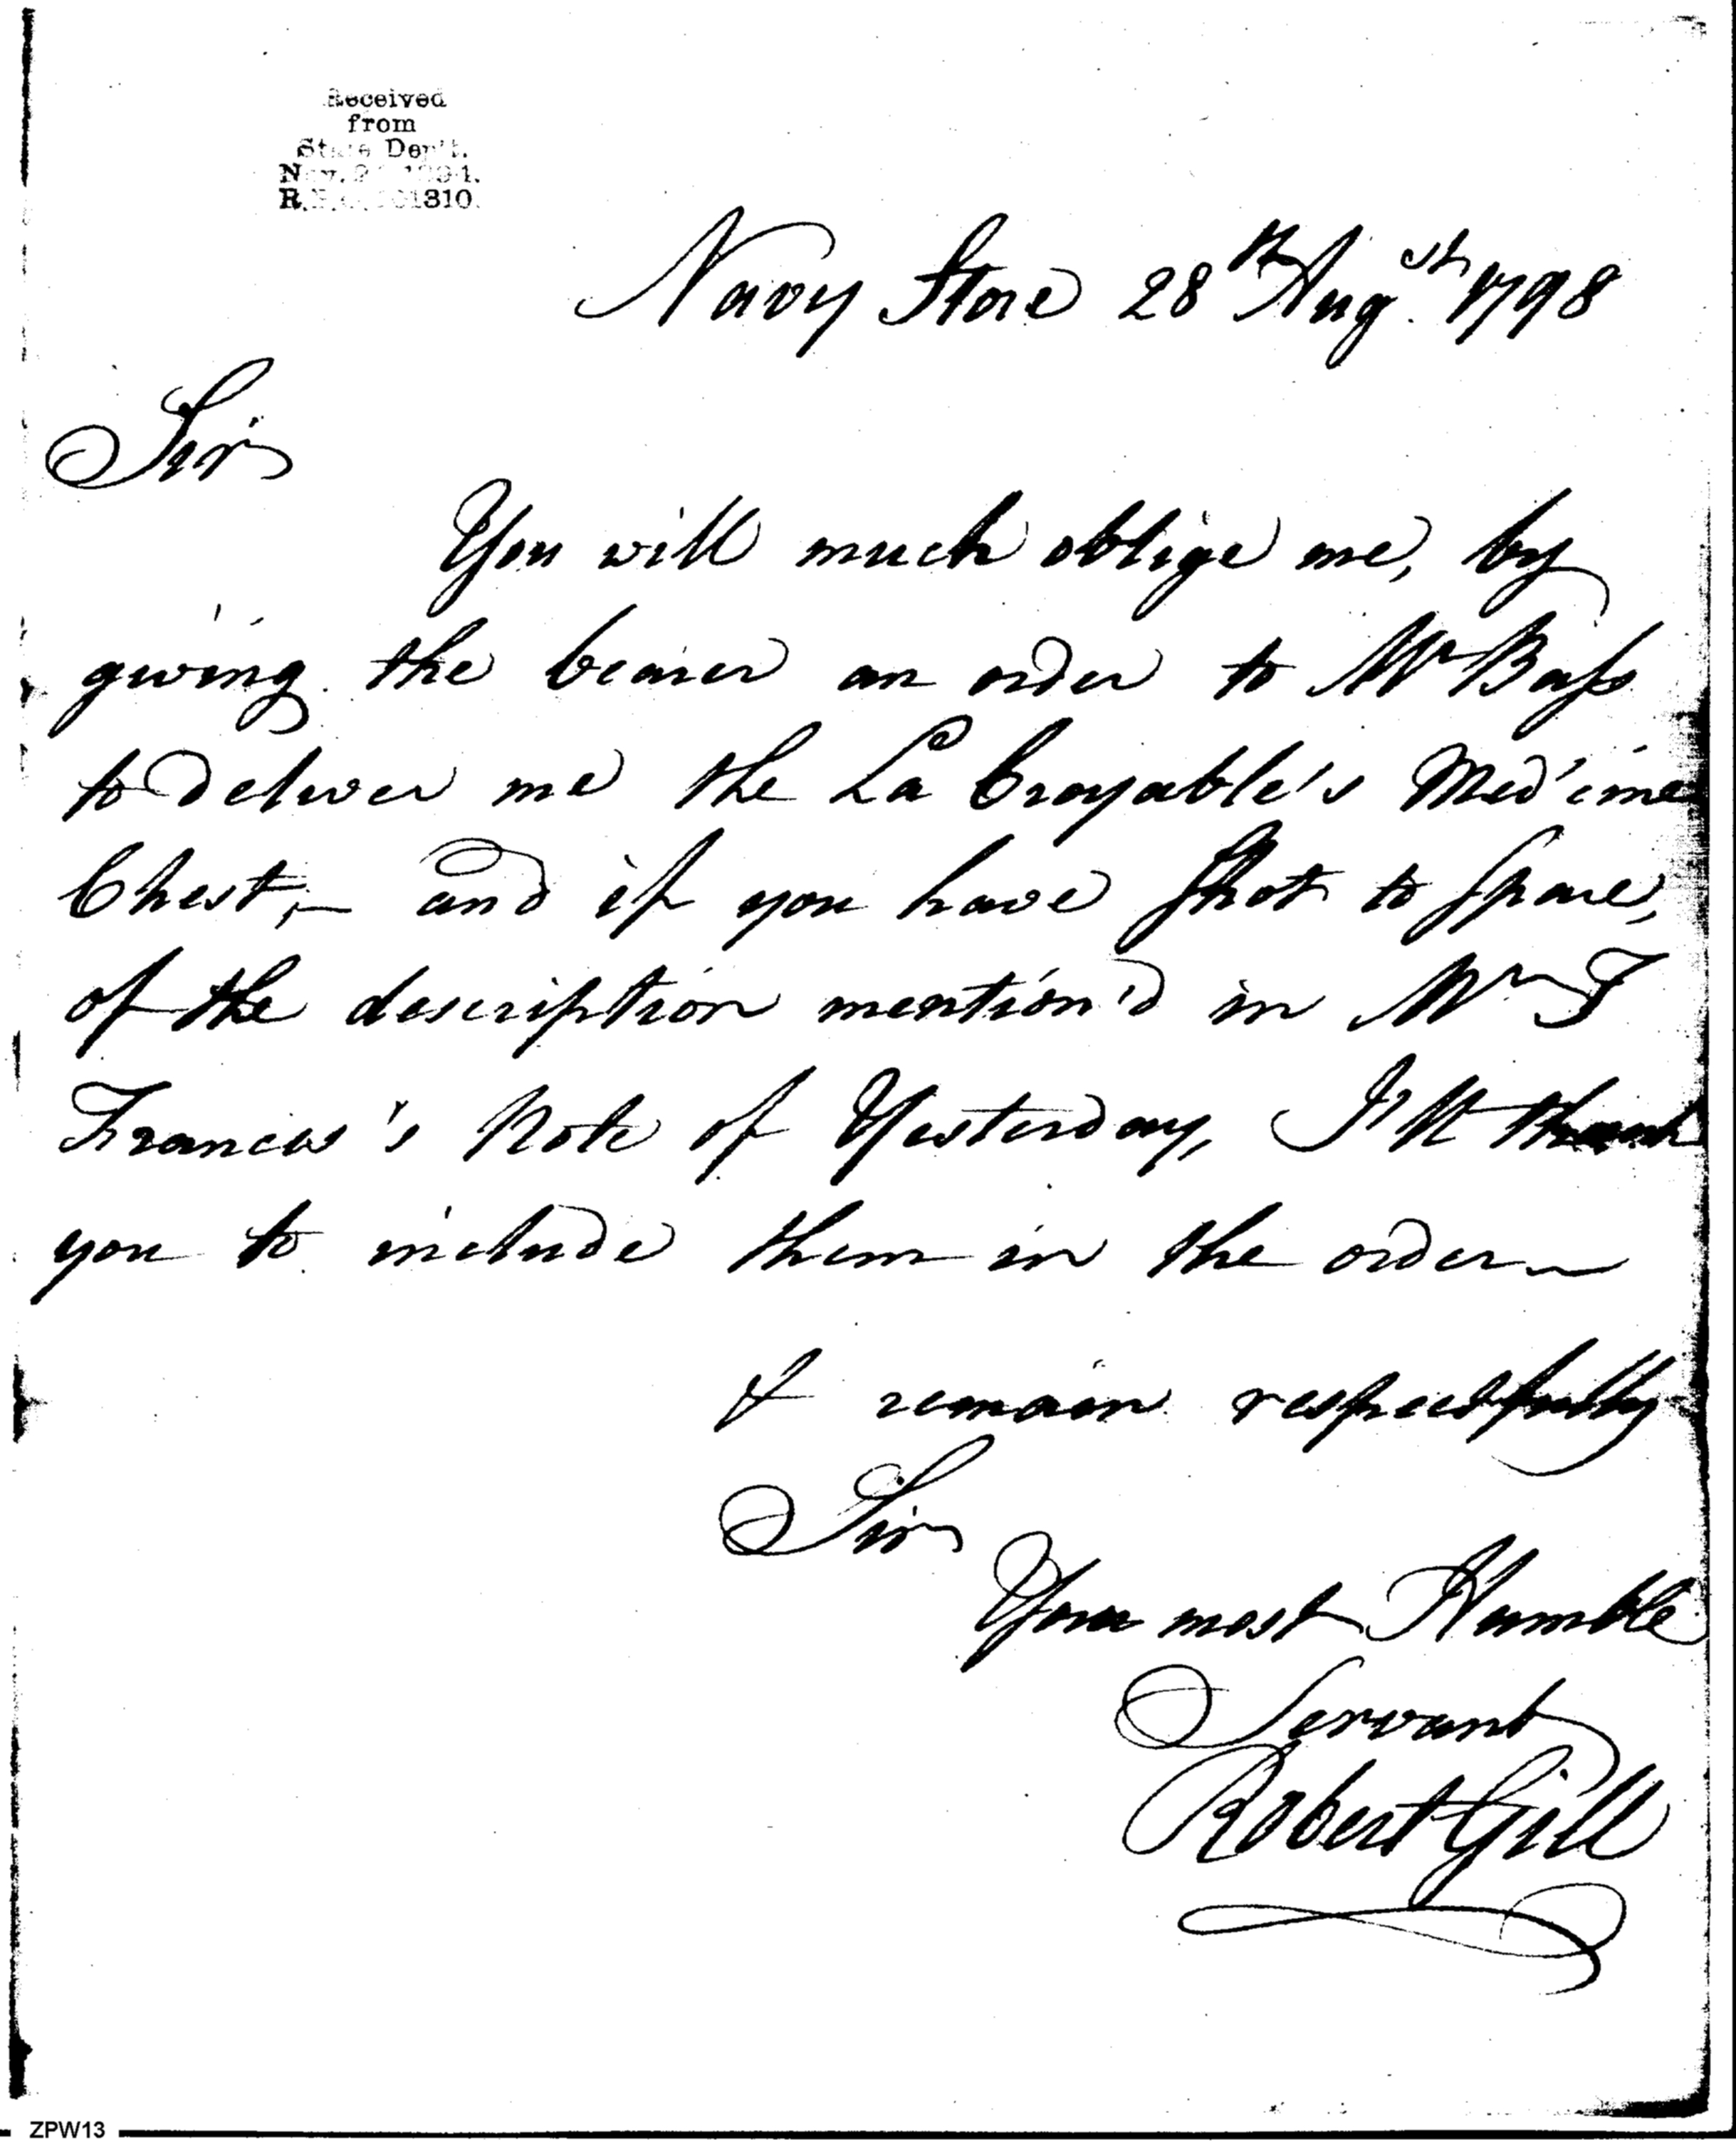 Received
from
State Dep't.
R. 101310.
Navy Store 28th Augst. 1798
Sir
You will much oblige me, by
giving the bearer an order to Mr Bass
to deliver me the La Croyable's Med'cine
Chest, — and if you have Shot to Spare,
of the description mention'd in Mr T
Francis's Note of Yesterday, I'll thank
you to include them in the order —
I remain respectfully
Sir
Your most Humble
Servant
Robert Gill
ZPW13